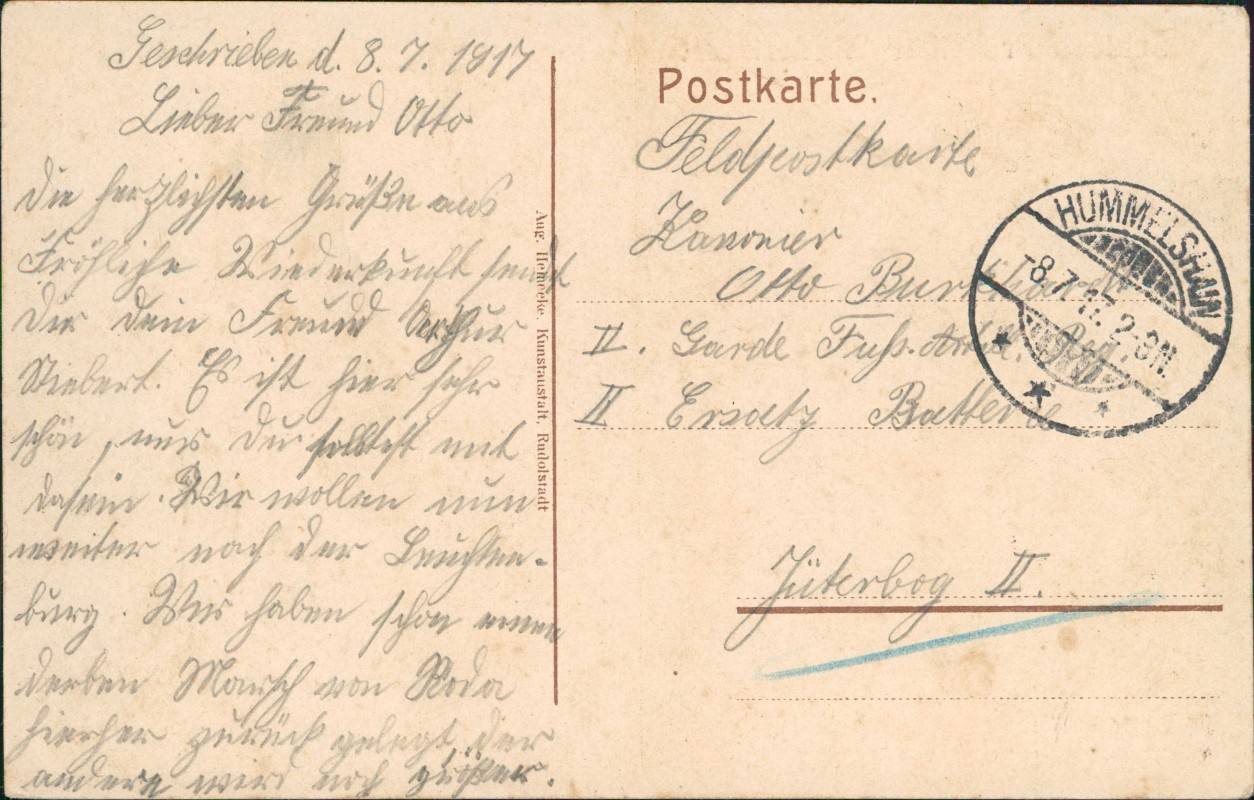 Geschrieben d. 8. 7. 1917
Lieber Freund Otto
die herzlichsten Grüße aus
Fröhliche Wiederkunft sendet
Dir dein Freund Arthur
Siebert. Es ist hier sehr
schön, nur Du solltest mit
dasein. Wir wollen nun
weiter nach der Leuchten-
burg. Wir haben schon einen
derben Marsch von Roda
hierher zurück gelegt, der
andere wird noch größer.
Aug. Heinecke, Kunstanstalt, Rudolstadt
Postkarte.
Feldpostkarte
Kanonier
Otto
II. Garde Fuss. Artill.
II Ersatz Batterie
Jüterbog II.
HUMMELSHAIN
-8.7.17. 2-3N.